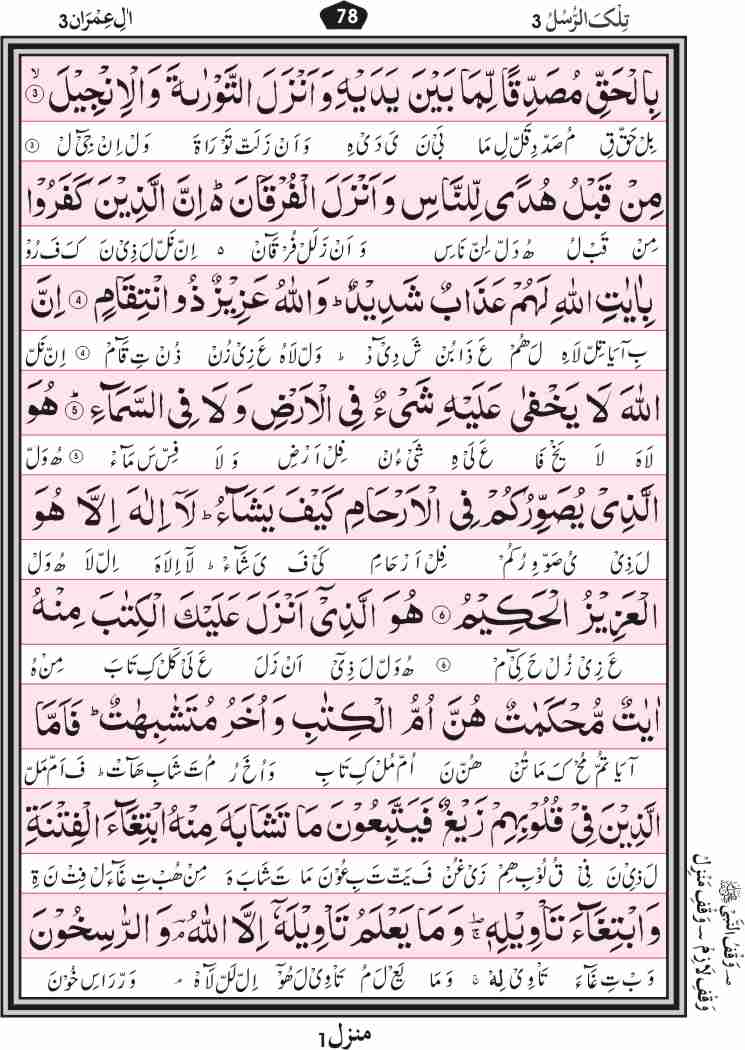 تِلْکَ الرُّسُلُ 3
78
اٰلِ عِمْرَان 3
بِالْحَقِّ مُصَدِّقًا لِّمَا بَيْنَ يَدَيْهِ وَاَنْزَلَ التَّوْرٰىةَ وَالْاِنْجِيْلَ ۙ۳
بِلْ حَقّ قِ مُصَدّ دِقَلّ لِ مَا بَیْ نَ یَ دَیْ ہِ وَ اَنْ زَ لَتّ تَوْ رَا ۃَ وَلْ اِنْ جِیْٓ لَ ۳
مِنْ قَبْلُ هُدًى لِّلنَّاسِ وَاَنْزَلَ الْفُرْقَانَ ؕ اِنَّ الَّذِيْنَ كَفَرُوْا
مِنْ قَبْ لُ ھُ دَلّ لِنّ نَاسِ وَ اَنْ زَ لَلْ فُرْ قَآنْ ہ اِنّ نَلّ لَ ذِیْ نَ کَ فَ رُوْ
بِاٰيٰتِ اللهِ لَهُمْ عَذَابٌ شَدِيْدٌ ؕ وَاللهُ عَزِيْزٌ ذُو انْتِقَامٍ ۴ اِنَّ
بِ آ یَا تِلّ لَاہِ لَ ھُمْ عَ ذَا بُنْ شَ دِیْٓ دْ ؕ وَلّ لَاہُ عَ زِیْ زُنْ ذُنْ تِ قَآمْ ۴ اِنّ نَلّ
اللهَ لَا يَخْفٰى عَلَيْهِ شَىْءٌ فِى الْاَرْضِ وَلَا فِى السَّمَآءِ ؕ۵ هُوَ
لَاہَ لَا یَخْ فَا عَ لَیْ ہِ شَیْ ءُنْ فِلْ اَرْضِ وَ لَا فِسّ سَ مَآءْ ۵ ھُ وَلّ
الَّذِىْ يُصَوِّرُكُمْ فِى الْاَرْحَامِ كَيْفَ يَشَآءُ ؕ لَاۤ اِلٰهَ اِلَّا هُوَ
لَ ذِیْ یُ صَوّ وِ رُ کُمْ فِلْ اَرْ حَامِ کَیْ فَ یَ شَآءْ ؕ لَآ اِلَاہَ اِلّ لَا ھُ وَلْ
الْعَزِيْزُ الْحَكِيْمُ ۶ هُوَ الَّذِىْۤ اَنْزَلَ عَلَيْكَ الْكِتٰبَ مِنْهُ
عَ زِیْ زُ لْ حَ کِیْٓ مْ ۶ ھُ وَلّ لَ ذِیْٓ اَنْ زَلَ عَ لَیْ کَلْ کِ تَابَ مِنْ ہُ
اٰيٰتٌ مُّحْكَمٰتٌ هُنَّ اُمُّ الْكِتٰبِ وَاُخَرُ مُتَشٰبِهٰتٌ ؕ فَاَمَّا
آیَا تُمّ مُحْ کَ مَا تُنْ ھُنّ نَ اُمّ مُلْ کِ تَابِ وَ اُ خَ رُ مُ تَ شَابِ ھَآتْ ؕ فَ اَمّ مَلّ
الَّذِيْنَ فِىْ قُلُوْبِهِمْ زَيْغٌ فَيَتَّبِعُوْنَ مَا تَشَابَهَ مِنْهُ ابْتِغَآءَ الْفِتْنَةِ
لَ ذِیْ نَ فِیْ قُ لُوْبِ ھِمْ زَیْ غُنْ فَ یَتّ تَ بِ عُوْنَ مَا تَ شَابَ ہَ مِنْ ھُبْ تِ غَآءَ لْ فِتْ نَ ۃِ
وَابْتِغَآءَ تَاْوِيْلِهٖ ۚ وَمَا يَعْلَمُ تَاْوِيْلَهٗۤ اِلَّا اللهُ ۘ وَالرّٰسِخُوْنَ
وَ بْ تِ غَآءَ تَاْوِیْ لِہْ ۚ وَ مَا یَعْ لَ مُ تَاْوِیْ لَ ھُوْٓ اِلّ لَلّ لَاہْ م وَ رّ رَاسِ خُوْنَ
وَقْفُ النَّبِيِّ ﷺ
وَقْفِ مَنْزِلْ
وَقْفِ لَازِمْ
منزل 1